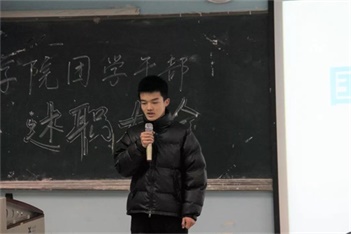 学院团学干部
述职大会
国